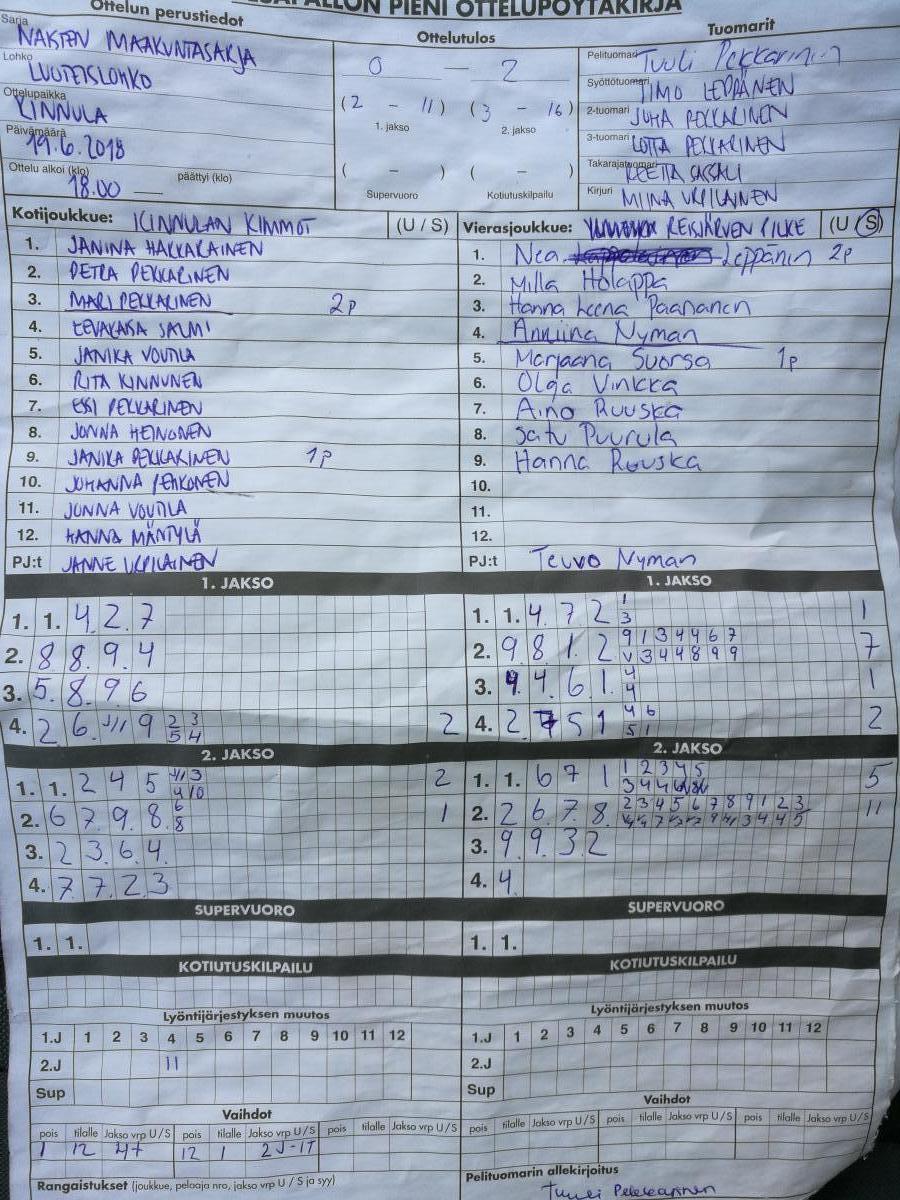 PESÄPALLON PIENI OTTELUPÖYTÄKIRJA
Ottelun perustiedot
Sarja NAISTEN MAAKUNTASARJA
Lohko
Ottelupaikka KINNULA
Päivämäärä 19.6.2018
Ottelu alkoi (klo) 18.00 päättyi (klo)
Ottelutulos
0 - 2
(2 - 11) (3 - 16)
1. jakso 2. jakso
( - ) ( - )
Supervuoro Kotiutuskilpailu
Tuomarit
Pelituomari Tuuli Pekkarinen
Syöttötuomari TIMO LEPPÄNEN
2-tuomari JUHA PEKKARINEN
3-tuomari LOTTA PEKKARINEN
Takarajatuomari REETTA
Kirjuri MIINA URPILAINEN
Kotijoukkue: KINNULAN KIMMOT (U / S)
1. JANINA HAKKARAINEN
2. PETRA PEKKARINEN
3. MARI PEKKARINEN 2p
4. EEVAKAISA SALMI
5. JANIKA VOUTILA
6. RITA KINNUNEN
7. ESSI PEKKARINEN
8. JONNA HEINONEN
9. JANIKA PEKKARINEN 1p
10. JOHANNA PEHKONEN
11. JONNA VOUTILA
12. HANNA MÄNTYLÄ
PJ:t JANNE URPILAINEN
Vierasjoukkue: REISJÄRVEN PILKE (U / S)
1. Nea Leppänen 2p
2. Milla Holappa
3. Hanna Leena Paananen
4. Anniina Nyman
5. Marjaana Suorsa 1p
6. Olga Vinkka
7. Aino Ruuska
8. Satu Puurula
9. Hanna Ruuska
10.
11.
12.
PJ:t Teuvo Nyman
1. JAKSO
1. 1. 4. 2. 7
2. 8 8. 9. 4
3. 5. 8. 9 6
4. 2 6. 9 2 3 2
5 4
2. JAKSO
1. 1. 2 4 5 2
2. 6 7. 9. 8. 6 1
8
3. 2 3. 6. 4.
4. 7 7. 2. 3
SUPERVUORO
1. 1.
KOTIUTUSKILPAILU
1. JAKSO
1. 1. 4 7 2 1 1
3
2. 9 8 1. 2 9 1 3 4 4 6 7 7
3 4 4 8 9 9
3. 4 6 1. 4 1
4
4. 2 5 1 4 6 2
5 1
2. JAKSO
1. 1. 6 7 1 1 2 3 4 5 5
2. 2 6. 7. 8. 2 3 4 5 6 7 8 9 1 2 3 11
3. 9 9. 3 2
4. 4.
SUPERVUORO
1. 1.
KOTIUTUSKILPAILU
Lyöntijärjestyksen muutos
1.J 1 2 3 4 5 6 7 8 9 10 11 12
2.J 11
Sup
Vaihdot
pois tilalle Jakso vrp U/S pois tilalle Jakso vrp U/S pois tilalle Jakso vrp U/S
1 12 12 1 2J-1T
Rangaistukset (joukkue, pelaaja nro, jakso vrp U / S ja syy)
Lyöntijärjestyksen muutos
1.J 1 2 3 4 5 6 7 8 9 10 11 12
2.J
Sup
Vaihdot
pois tilalle Jakso vrp U/S pois tilalle Jakso vrp U/S pois tilalle Jakso vrp U/S
Pelituomarin allekirjoitus
Tuuli Pekkarinen